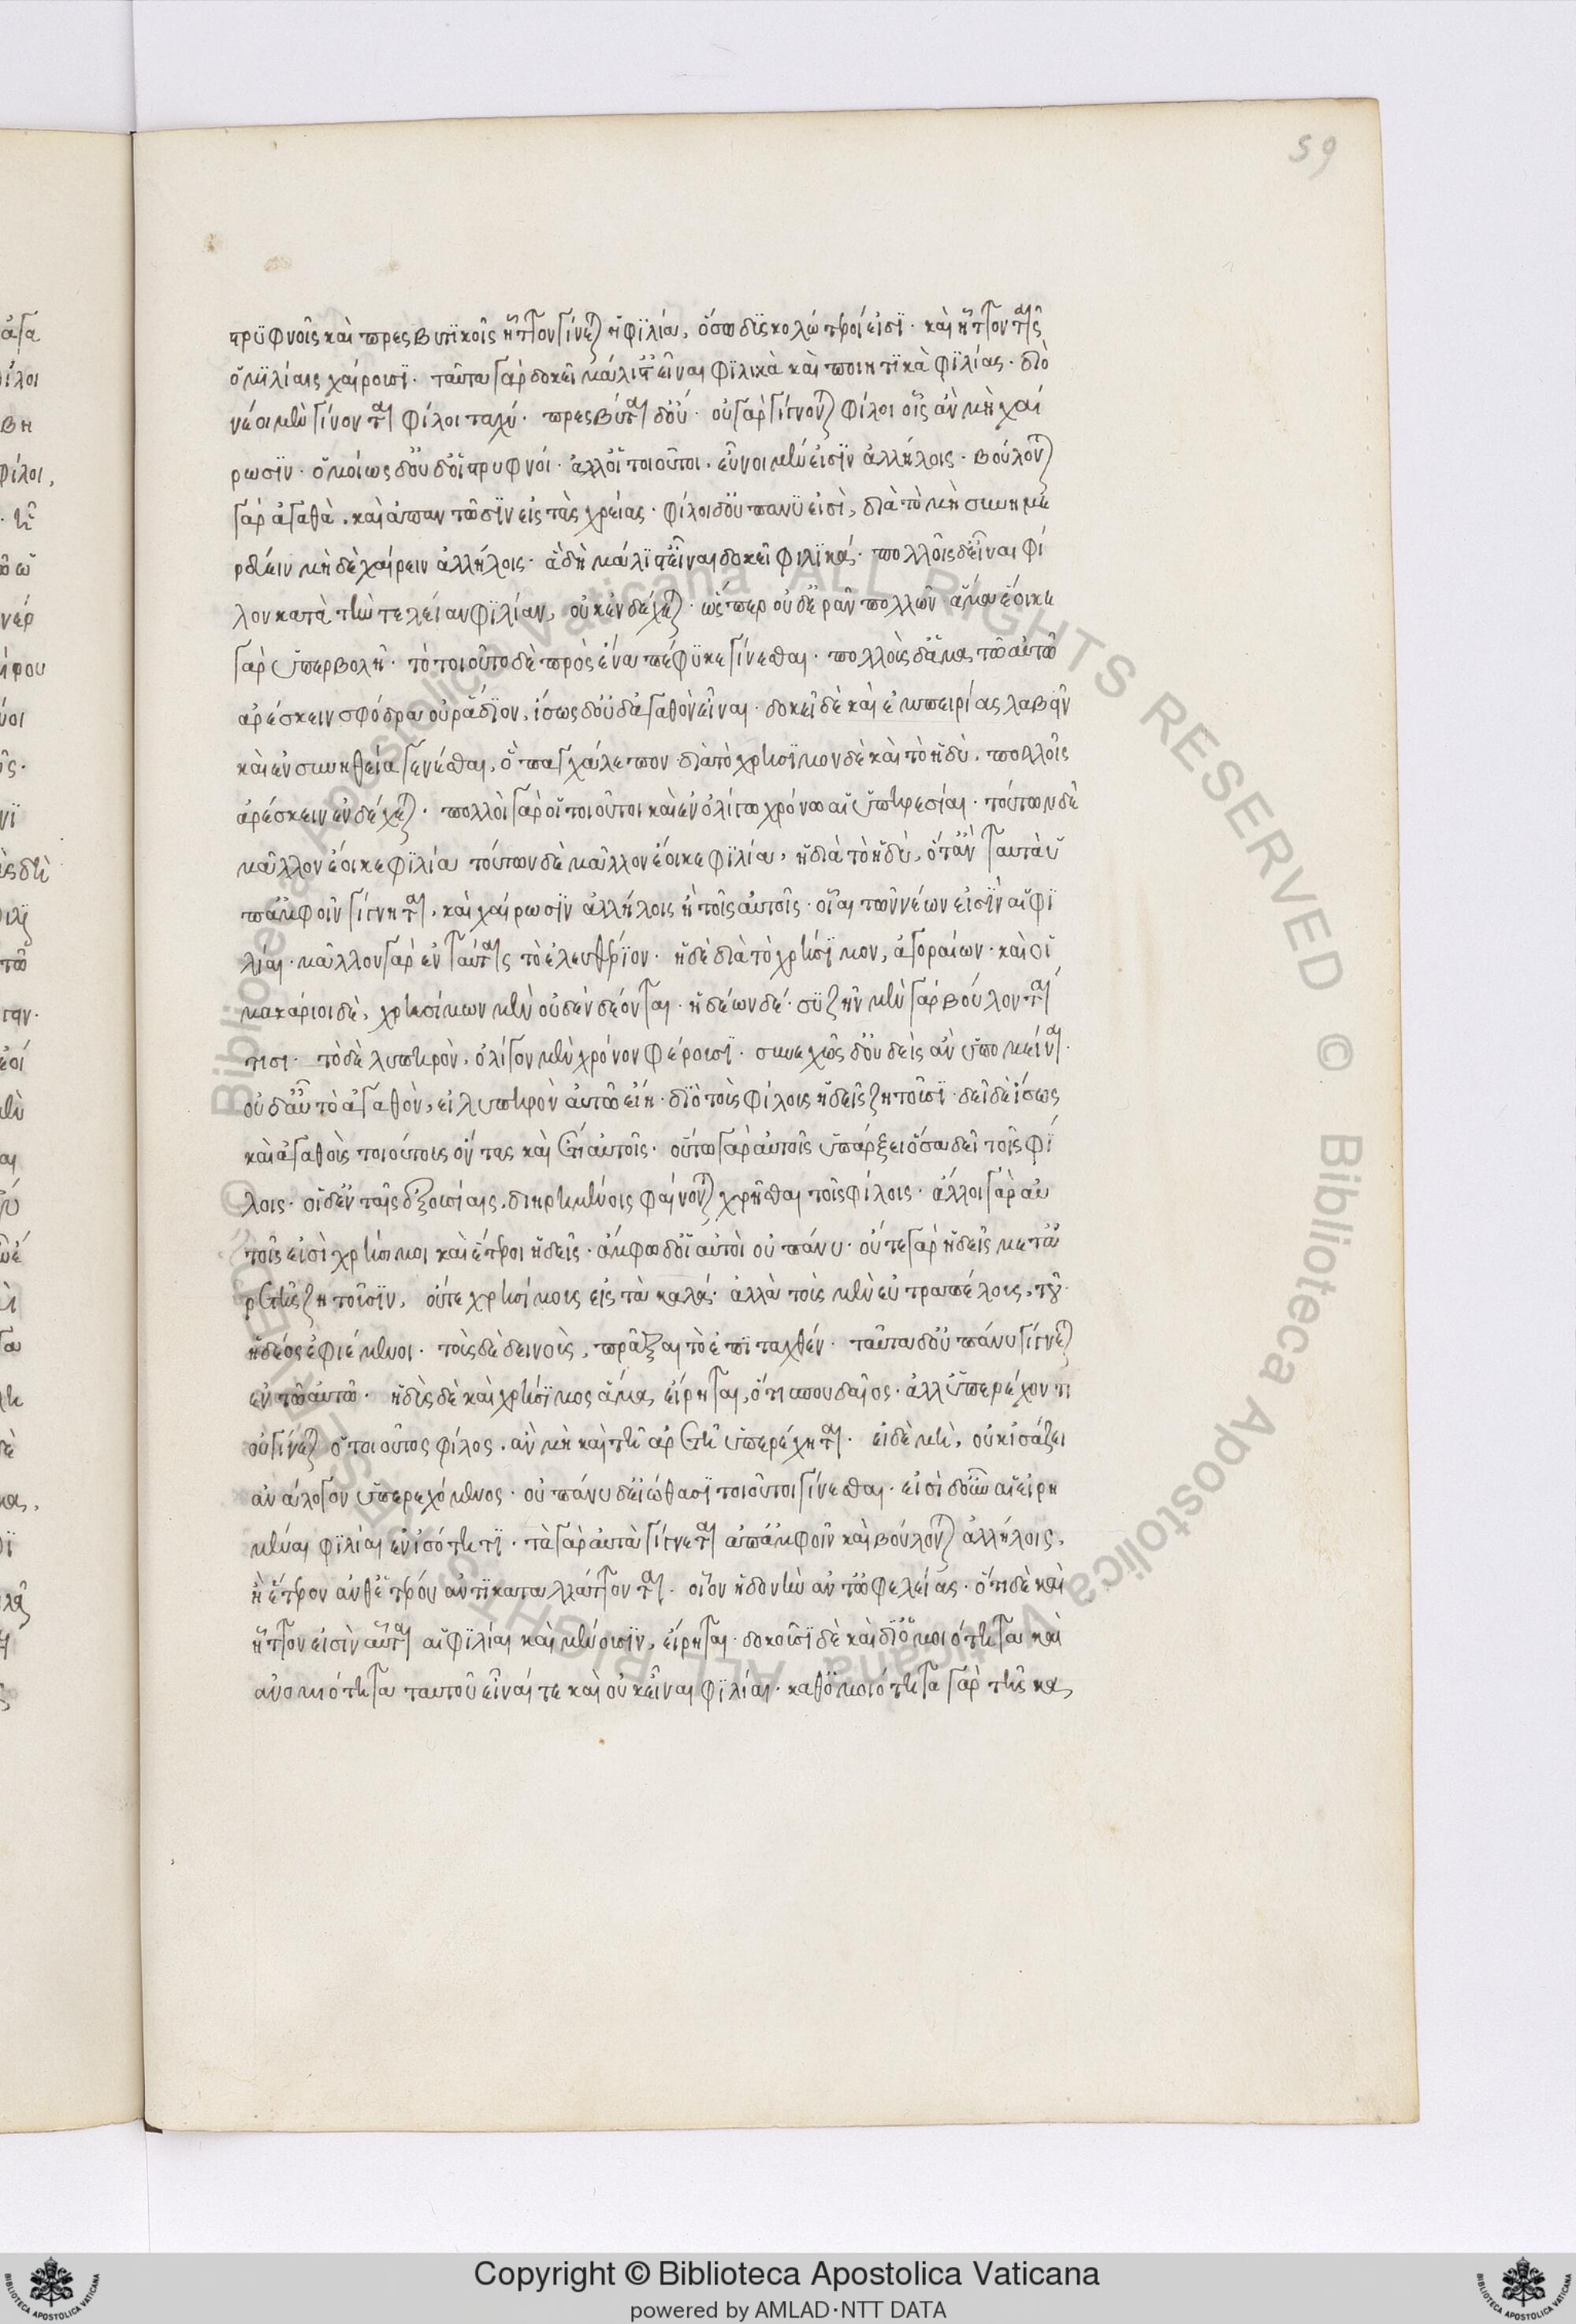 59
στρυφνοῖς καὶ πρεσβυτικοῖς ἧττον γίνεται ἡ φιλία, ὅσω δυσκολώτεροί εἰσι· καὶ ἧττον ταῖς
ὁμιλίαις χαίρουσι· ταῦτα γὰρ δοκεῖ μάλιστ' εἶναι φιλικὰ καὶ ποιητικὰ φιλίας· διὸ
νέοι μὲν γίνονται φίλοι ταχύ· πρεσβύται δ' οὔ· οὐ γὰρ γίγνονται φίλοι οἷς ἂν μὴ χαί
ρωσιν· ὁμοίως δ' οὐδ' οἱ στρυφνοί· ἀλλ' οἱ τοιοῦτοι, εὖνοι μέν εἰσιν ἀλλήλοις· βούλονται
γὰρ ἀγαθὰ, καὶ ἀπαντῶσιν εἰς τὰς χρείας· φίλοι δ' οὐ πάνυ εἰσὶ, διὰ τὸ μὴ συνημε
ρεύειν μὴ δὲ χαίρειν ἀλλήλοις· ἃ δὴ μάλιστ' εἶναι δοκεῖ φιλικά· πολλοῖς δ' εἶναι φί
λον κατὰ τὴν τελείαν φιλίαν, οὐκ ἐνδέχεται· ὥσπερ οὐδ' ἐρᾶν πολλῶν ἅμα ἔοικε
γὰρ ὑπερβολῆ· τὸ τοιοῦτο δὲ πρὸς ἕνα πέφυκε γίνεσθαι· πολλοὺς δ' ἅμα τῶ αὐτῶ
ἀρέσκειν σφόδρα οὐ ῥάδιον, ἴσως δ' οὐδ' ἀγαθὸν εἶναι· δοκεῖ δὲ καὶ ἐμπειρίας λαβεῖν
καὶ ἐν συνηθεία γενέσθαι, ὃ παγχάλεπον· διὰ τὸ χρήσιμον δὲ καὶ τὸ ἡδὺ, πολλοῖς
ἀρέσκειν ἐνδέχεται· πολλοὶ γὰρ οἱ τοιοῦτοι καὶ ἐν ὀλίγω χρόνω αἱ ὑπηρεσίαι· τούτων δὲ
μᾶλλον ἔοικε φιλία τούτων δὲ μᾶλλον ἔοικε φιλία, ἡ διὰ τὸ ἡδὺ, ὅταν ταυτὰ ὑ
π' ἀμφοῖν γίγνηται, καὶ χαίρωσιν ἀλλήλοις ἢ τοῖς αὐτοῖς· οἷαι τῶν νέων εἰσὶν αἱ φι
λίαι· μᾶλλον γὰρ ἐν ταύταις τὸ ἐλευθέριον· ἡ δὲ διὰ τὸ χρήσιμον, ἀγοραίων· καὶ οἱ
μακάριοι δὲ, χρησίμων μὲν οὐδὲν δέονται· ἡδέων δέ· συζῆν μὲν γὰρ βούλονταί
τισι· τὸ δὲ λυπηρὸν, ὀλίγον μὲν χρόνον φέρουσι· συνεχῶς δ' οὐδεὶς ἂν ὑπομείναι·
οὐδ' αὖ τὸ ἀγαθὸν, εἰ λυπηρὸν αὐτῶ εἴη· διὸ τοὺς φίλους ἡδεῖς ζητοῦσι· δεῖ δὲ ἴσως
καὶ ἀγαθοὺς τοιούτους ὄντας καὶ ἔτι αὐτοῖς· οὕτω γὰρ αὐτοῖς ὑπάρξει ὅσα δεῖ τοῖς φί
λοις· οἱ δ' ἐν ταῖς ἐξουσίαις, διηρημένοις φαίνονται χρῆσθαι τοῖς φίλοις· ἄλλοι γὰρ αὐ
τοῖς εἰσὶ χρήσιμοι καὶ ἕτεροι ἡδεῖς· ἄμφω δ' οἱ αὐτοὶ οὐ πάνυ· οὔτε γὰρ ἡδεῖς μετ' ἀ
ρετῆς ζητοῦσιν, οὔτε χρησίμους εἰς τὰ καλά· ἀλλὰ τοὺς μὲν εὐτραπέλους, τοῦ
ἡδέος ἐφιέμενοι· τοὺς δὲ δεινοὺς, πρᾶξαι τὸ ἐπιταχθέν· ταῦτα δ' οὐ πάνυ γίγνεται
ἐν τῶ αὐτῶ· ἡδὺς δὲ καὶ χρήσιμος ἅμα, εἴρηται, ὅτι σπουδαῖος· ἀλλ' ὑπερέχοντι
οὐ γίνεται ὁ τοιοῦτος φίλος, ἂν μὴ καὶ τῆ ἀρετῆ ὑπερέχηται· εἰ δὲ μὴ, οὐκ ἰσάζει
ἀνάλογον ὑπερεχόμενος· οὐ πάνυ δ' εἰώθασι τοιοῦτοι γίνεσθαι· εἰσὶ δ' οὖν αἱ εἰρη
μέναι φιλίαι ἐν ἰσότητι· τὰ γὰρ αὐτὰ γίγνεται ἀπ' ἀμφοῖν καὶ βούλονται ἀλλήλοις,
ἢ ἕτερον ἀνθ' ἑτέρου ἀντικαταλλάττονται· οἷον ἡδονὴν ἀντ' ὠφελείας· ὅτι δὲ καὶ
ἧττον εἰσὶν αὗται αἱ φιλίαι καὶ μένουσιν, εἴρηται· δοκοῦσι δὲ καὶ δι' ὁμοιότητα καὶ
ἀνομοιότητα ταυτοῦ εἶναί τε καὶ οὐκ εἶναι φιλίαι· καθ' ὁμοιότητα γὰρ τῆς κα
Copyright © Biblioteca Apostolica Vaticana
powered by AMLAD·NTT DATA